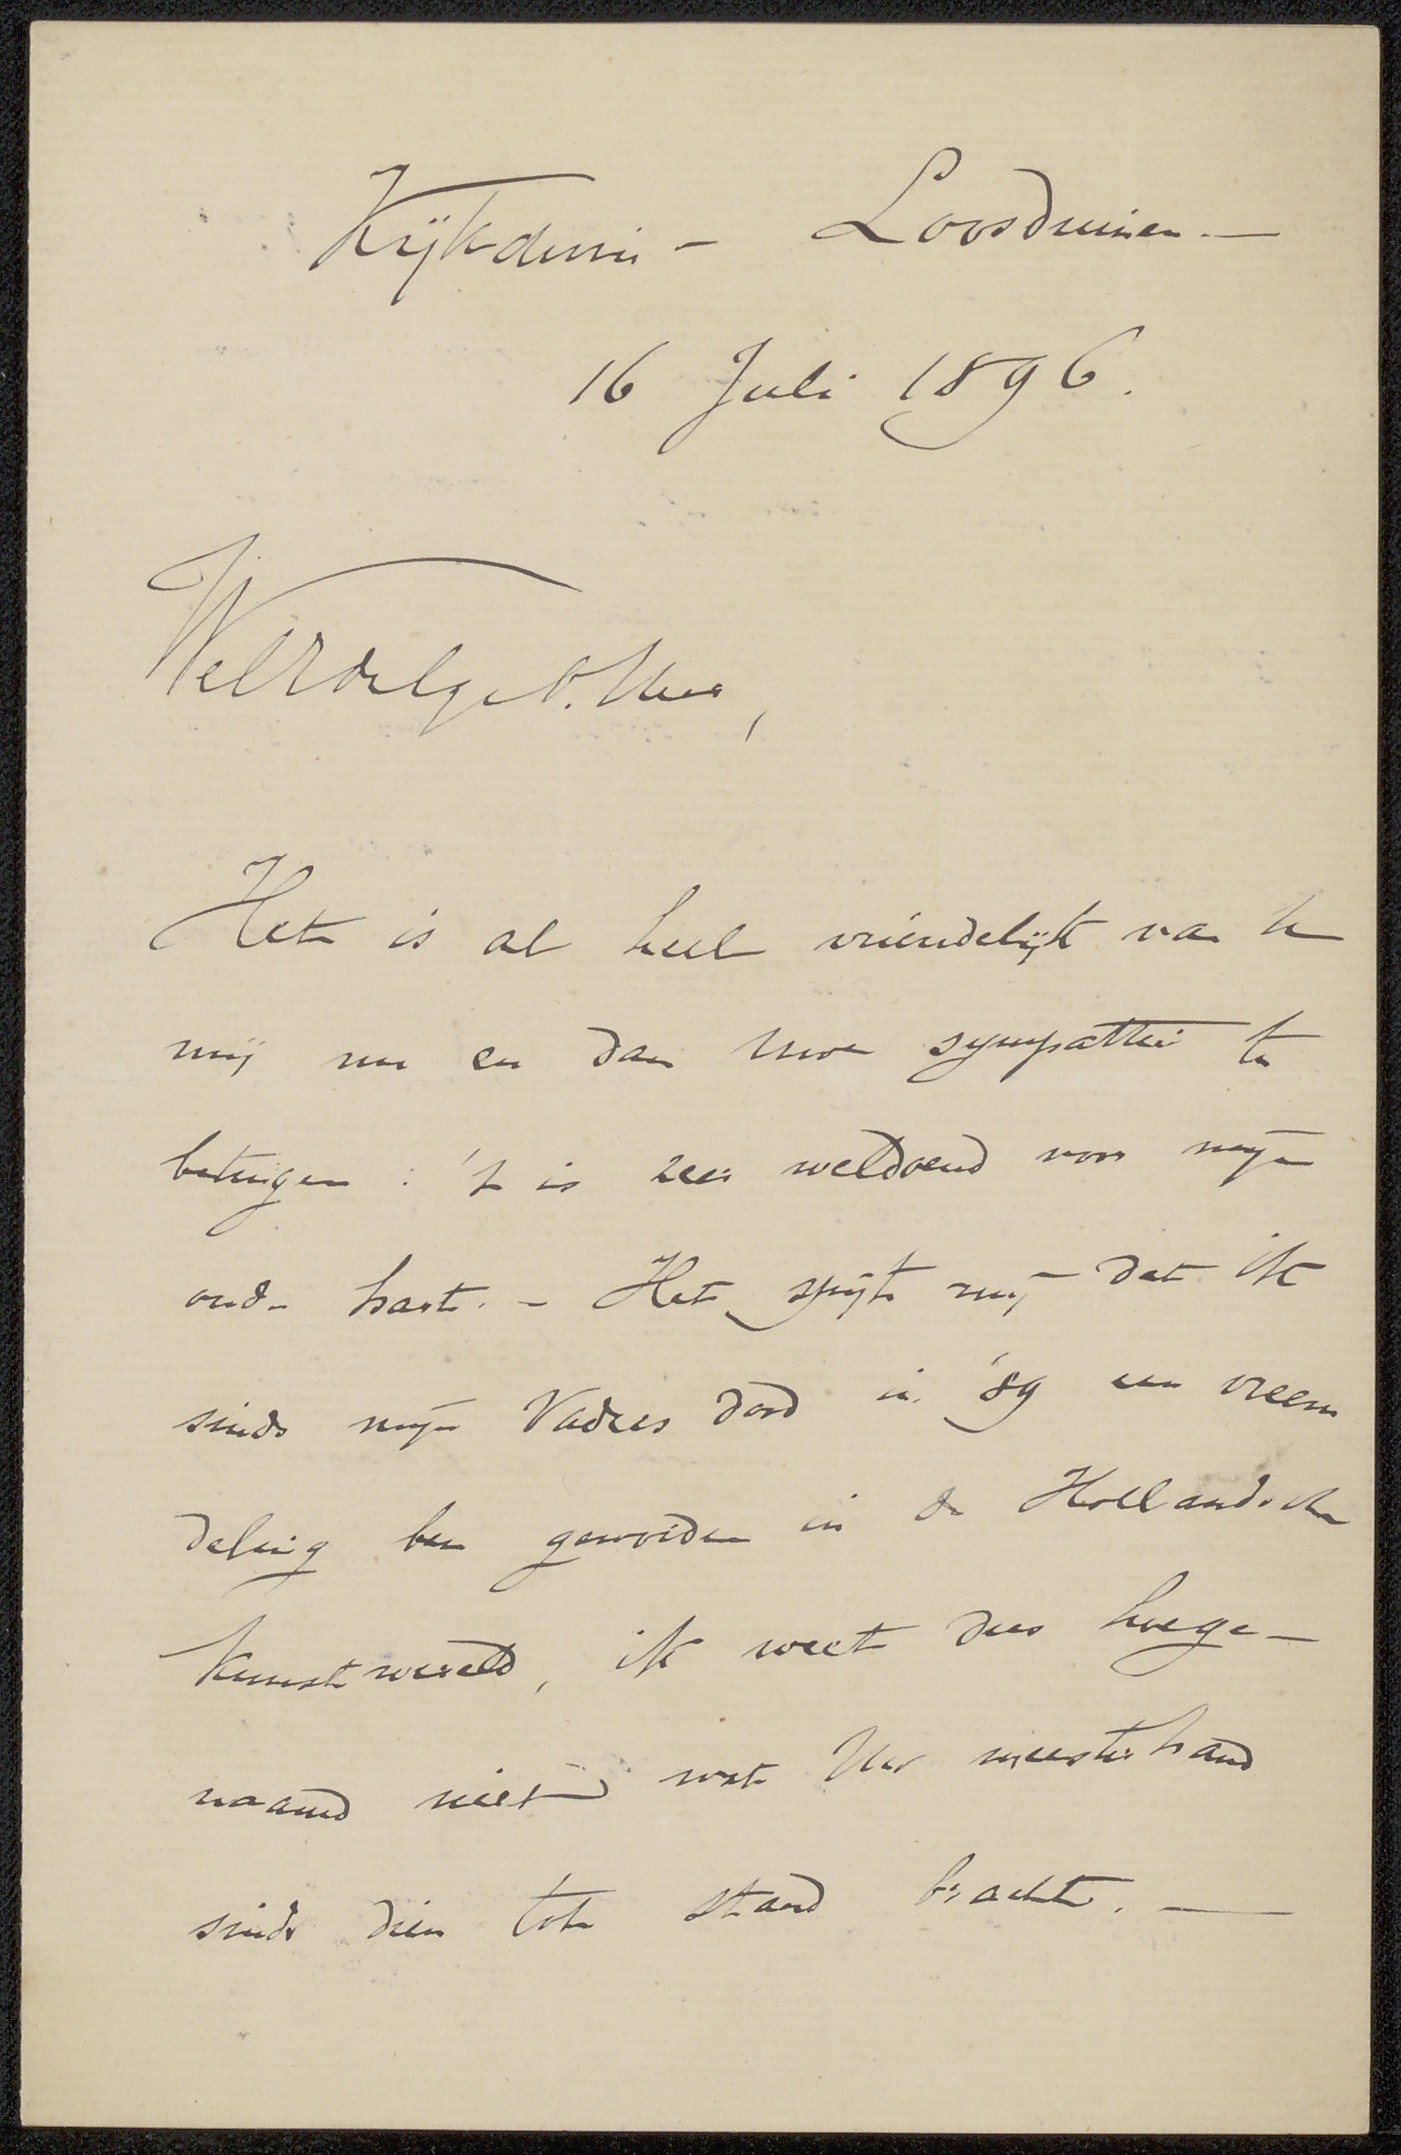 Kijkduin - Loosduinen. -
16 Juli 1896.
WelEdelgeb. Heer,
Het is al heel vriendelijk van U
mij nu en dan Uwe sympathie te
betuigen : 't is zeer weldoend voor mijn
oude hart. - Het spijt mij dat ik
sinds mijn Vaders dood in '89 een vreem
deling ben geworden in de Hollandsche
Kunstwereld, ik weet dus hoege-
naamd niet wat Uw meesterhand
sinds dien tot stand bracht. -